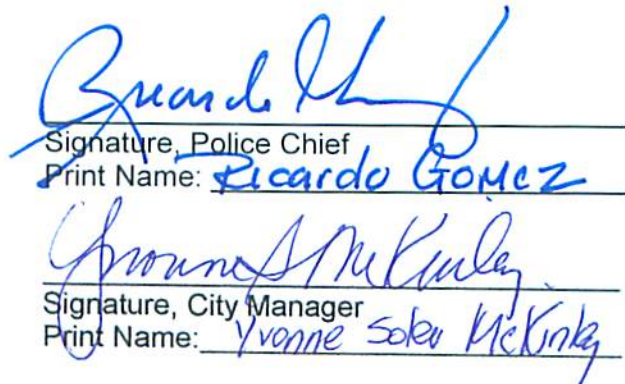 Ricardo Gomez
Signature, Police Chief
Print Name: Ricardo GOMEZ
Yvonne S McKinley
Signature, City Manager
Print Name: Yvonne Soler McKinley